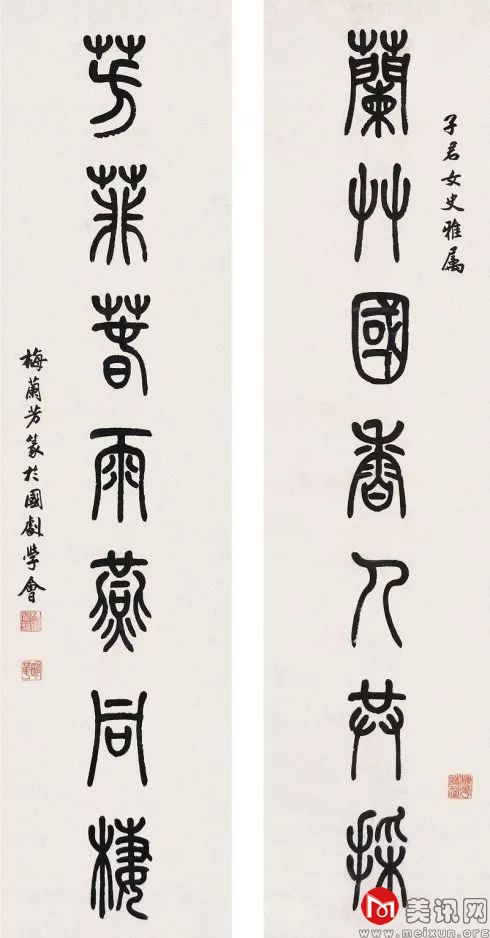 子君女史雅属
蘭艸國香人共採
芳菲春雨燕同棲
梅蘭芳篆於國劇學會
M 美讯网
www.meixun.org